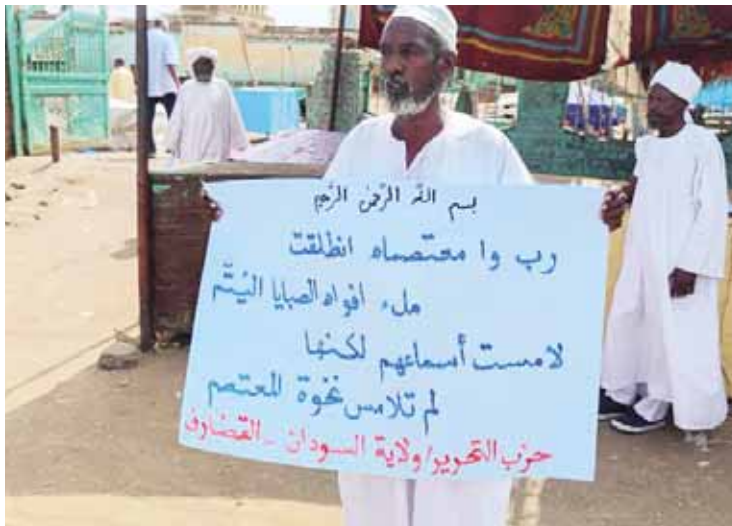 بسم الله الرحمن الرحيم
رب وا معتصماه انطلقت
ملء افواه الصبايا اليُتّم
لامست أسماعهم لكنها
لم تلامس نخوة المعتصم
حزب التحرير/ولاية السودان - القضارف